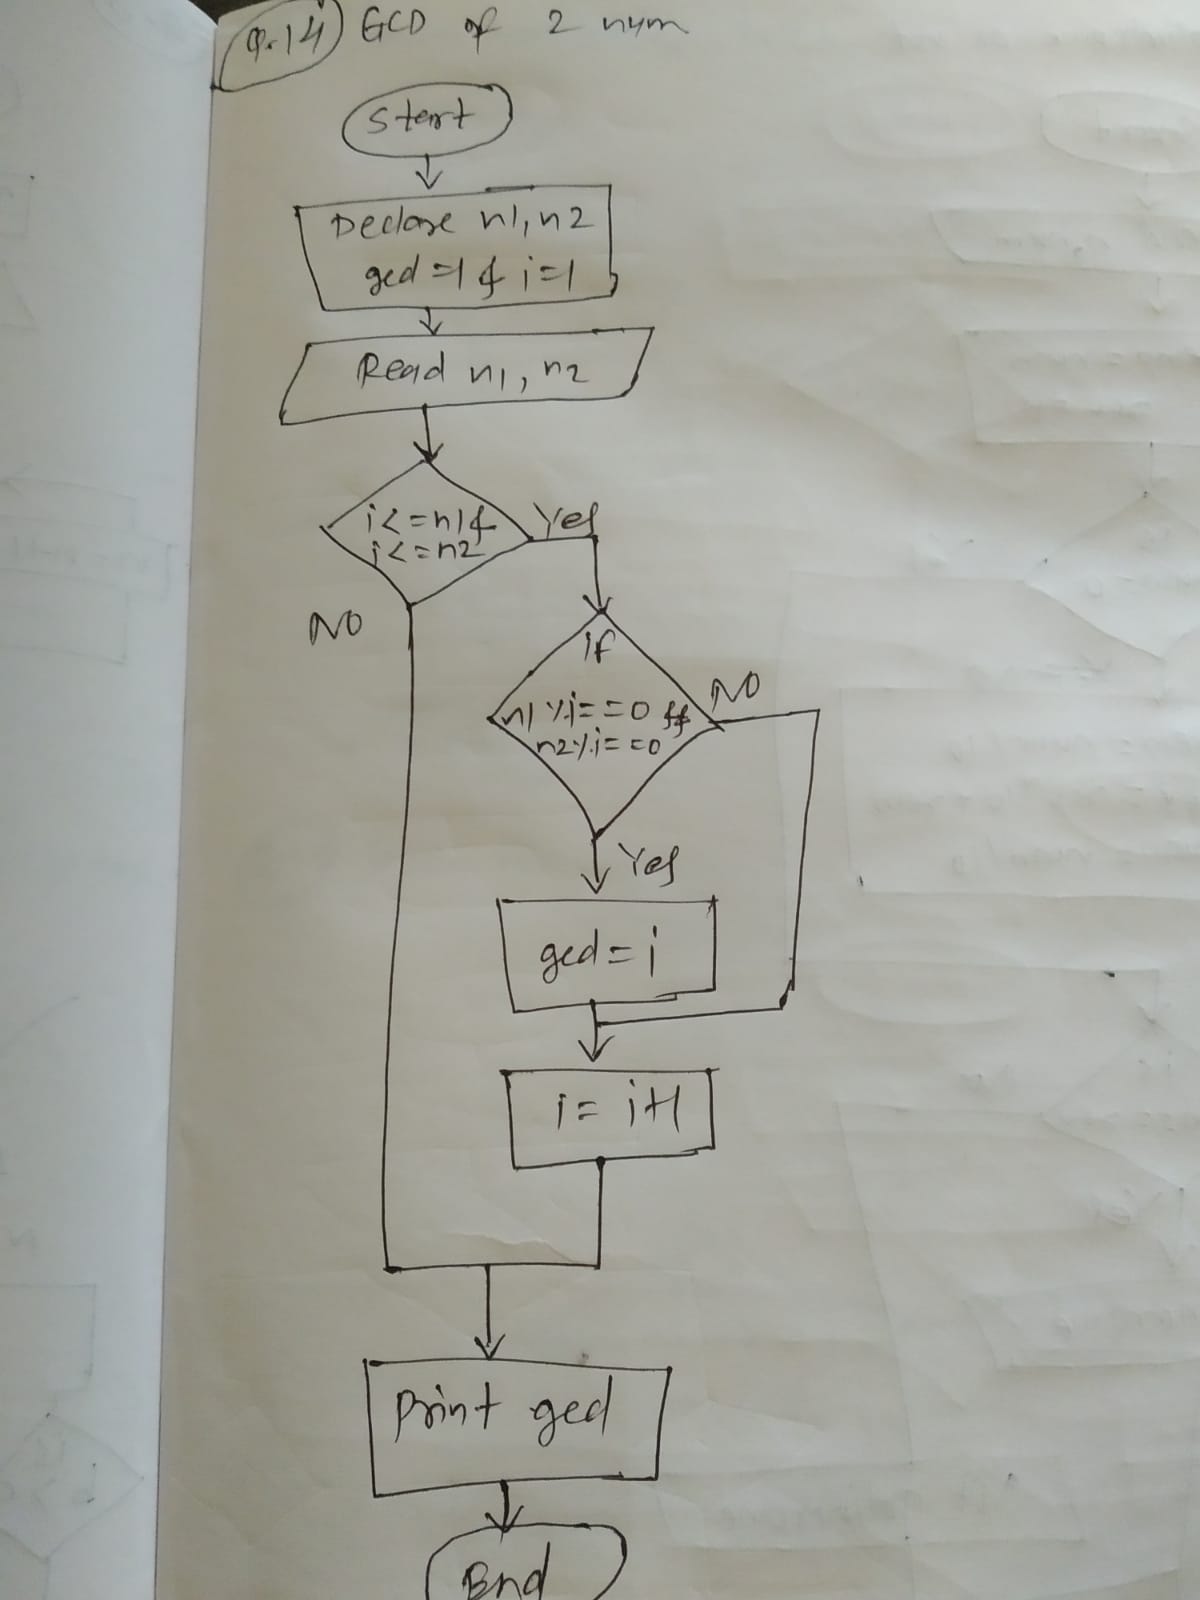 Q.14) GCD of 2 num
Start
Declare n1, n2
gcd =1 & i=1
Read n1, n2
i<=n1&
i<=n2
Yes
NO
if
n1%i==0 &&
n2%i==0
NO
Yes
gcd = i
i= i+1
Print gcd
End